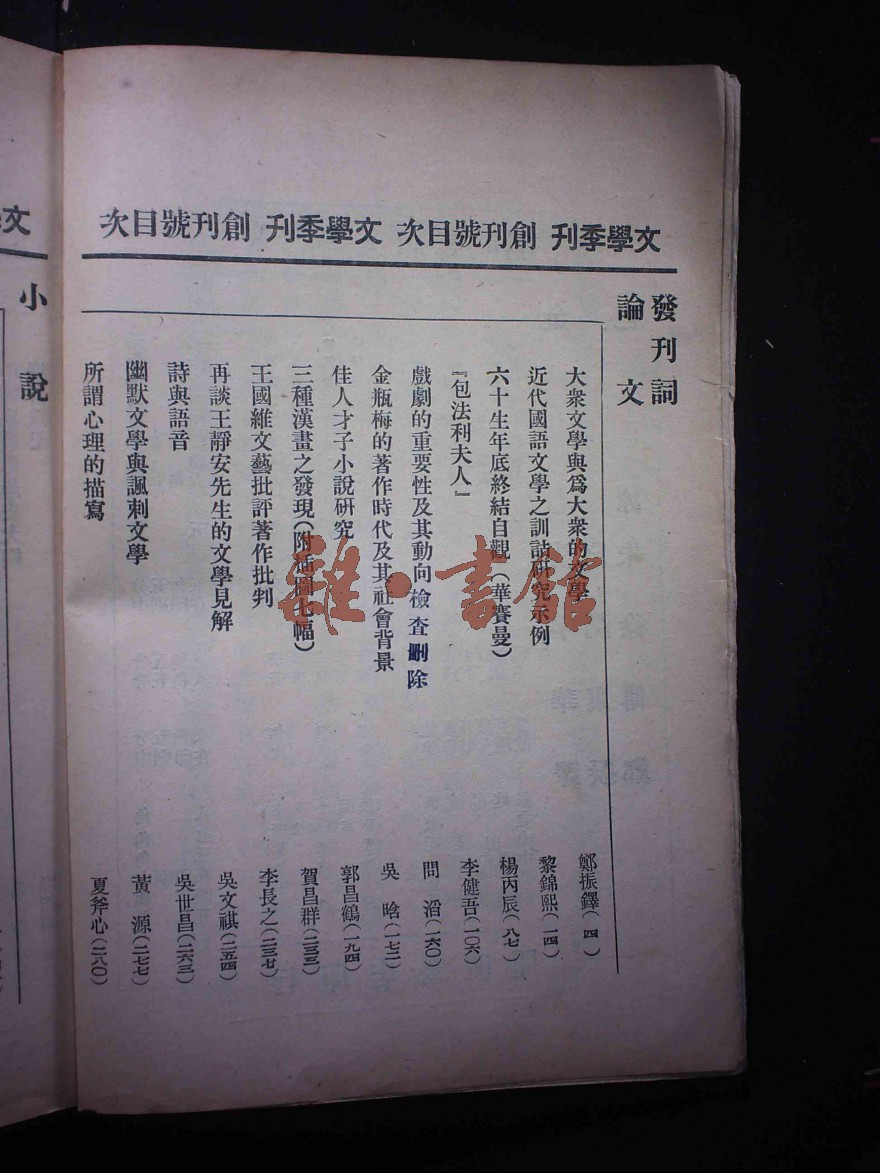 文學季刊 創刊號目次 文學季刊 創刊號目次
發刊詞
論文
大衆文學與爲大衆的文學 鄭振鐸(四)
近代國語文學之訓詁研究示例 黎錦熙(一四)
六十生年底終結自觀(華賽曼) 楊丙辰(八七)
『包法利夫人』 李健吾(一〇六)
戲劇的重要性及其動向檢查刪除 問滔(一六〇)
金瓶梅的著作時代及其社會背景 吳晗(一七二)
佳人才子小說研究 郭昌鶴(一九四)
三種漢畫之發現(附插圖七幅) 賀昌群(二三三)
王國維文藝批評著作批判 李長之(二三七)
再談王靜安先生的文學見解 吳文祺(二五四)
詩與語音 吳世昌(二六三)
幽默文學與諷刺文學 黃源(二七七)
所謂心理的描寫 夏斧心(二八〇)
文
小說
雜·書館